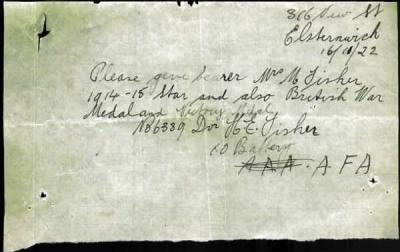 New St
Elsternwick
22
Please give bearer Mrs M Fisher
1914-15 Star and also British War
Medal and Victory Medal
Fisher
Battery
A.F.A